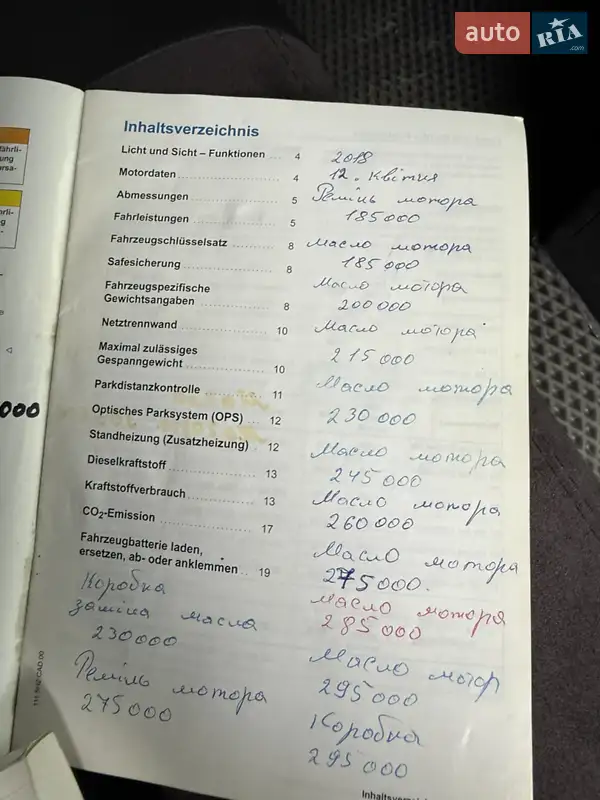 auto RIA .com
ährli-
ung
rsa-
rli-
g
000
Inhaltsverzeichnis
Licht und Sicht – Funktionen 4
Motordaten 4
Abmessungen 5
Fahrleistungen 5
Fahrzeugschlüsselsatz 8
Safesicherung 8
Fahrzeugspezifische
Gewichtsangaben 8
Netztrennwand 10
Maximal zulässiges
Gespanngewicht 10
Parkdistanzkontrolle 11
Optisches Parksystem (OPS) 12
Standheizung (Zusatzheizung) 12
Dieselkraftstoff 13
Kraftstoffverbrauch 13
CO2-Emission 17
Fahrzeugbatterie laden,
ersetzen, ab- oder anklemmen 19
Коробка
заміна масла
230000
Ремінь мотора
275000
2018
12. квітня
Ремінь мотора
185000
Масло мотора
185000
Масло мотора
200000
Масло мотора
215000
Масло мотора
230000
Масло мотора
245000
Масло мотора
260000
Масло мотора
275000.
Масло мотора
285000
Масло мотор
295000
Коробка
295000